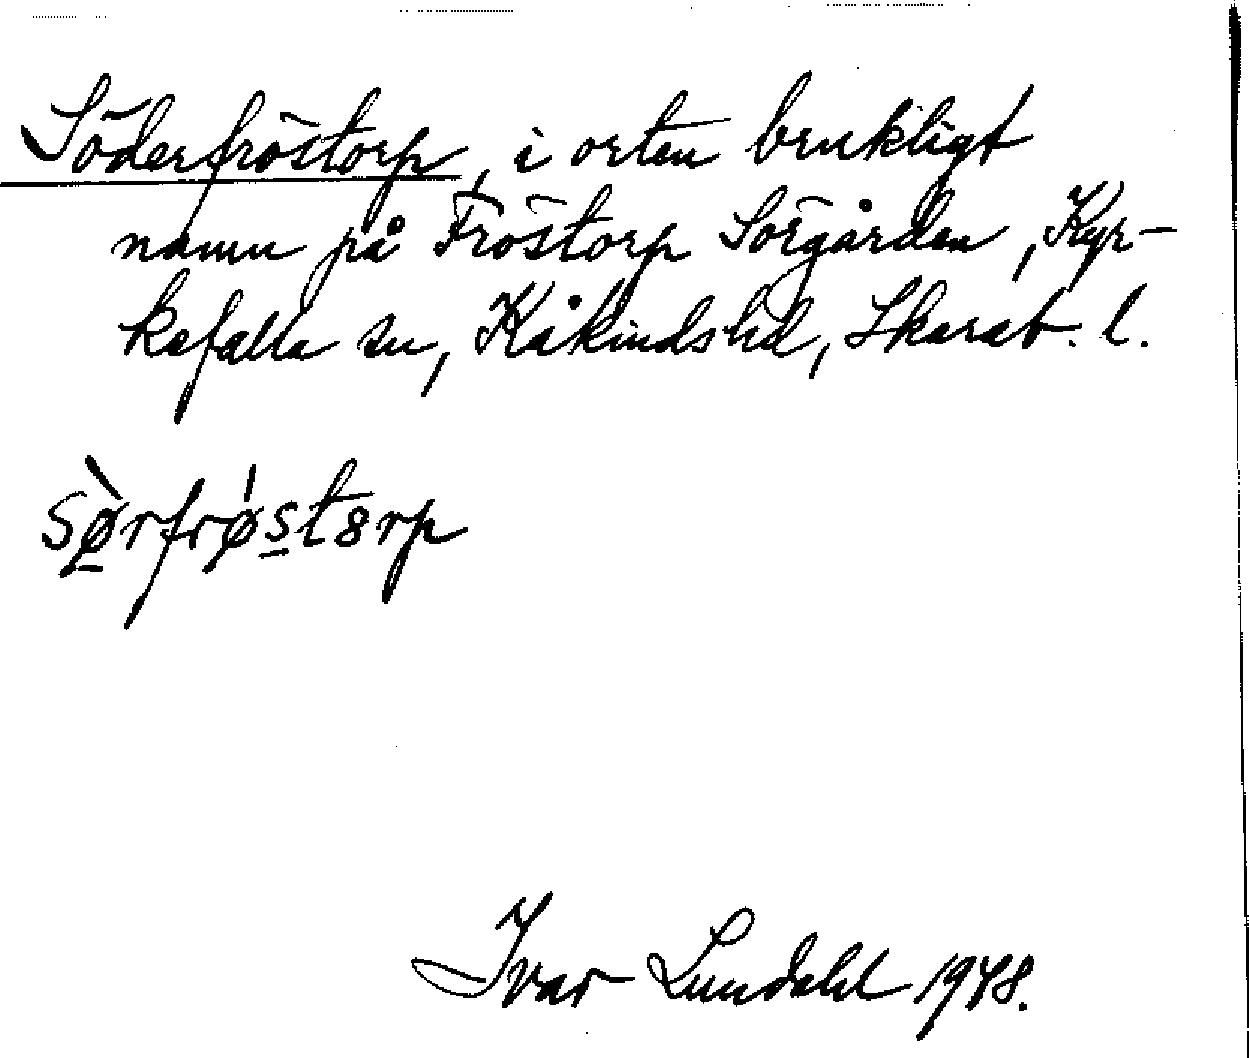 Söderfröstorp, i orten brukligt
namn på Fröstorp Sörgården, Kyr-
kefalla sn, Kåkinds hd, Skarab. l.
sø̀rfrǿstorp
Ivar Lundahl 1948.